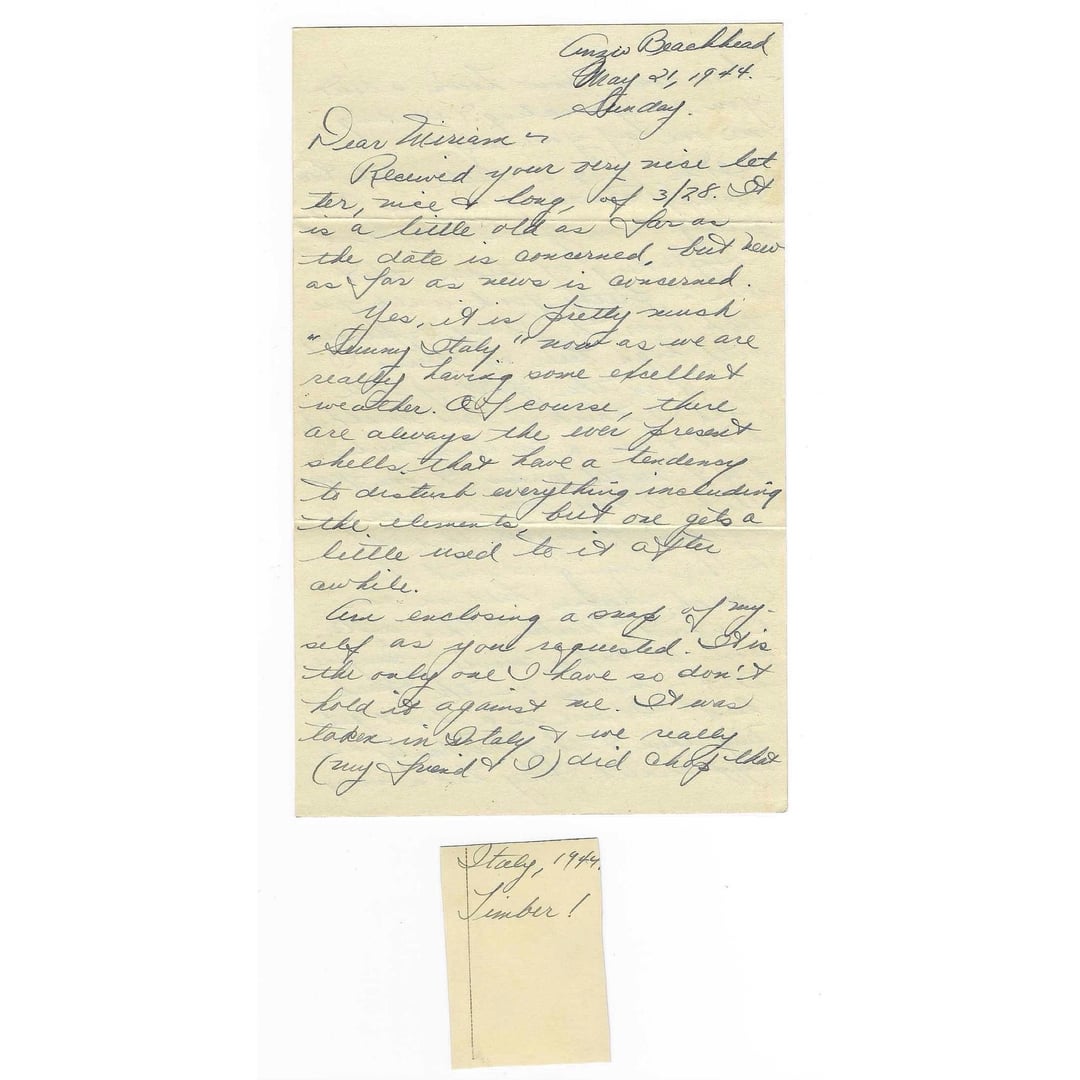 Anzio Beachhead
May 21, 1944.
Sunday.
Dear Miriam ~
Received your very nice let
ter, nice & long, of 3/28. It
is a little old as far as
the date is concerned, but new
as far as news is concerned.
Yes, it is pretty much
"Sunny Italy" now as we are
really having some excellent
weather. Of course, there
are always the ever present
shells that have a tendency
to disturb everything including
the elements, but one gets a
little used to it after
awhile.
Am enclosing a snap of my-
self as you requested. It is
the only one I have so don't
hold it against me. It was
taken in Italy & we really
(my friend & I) did chop that
Italy, 1944.
Timber!